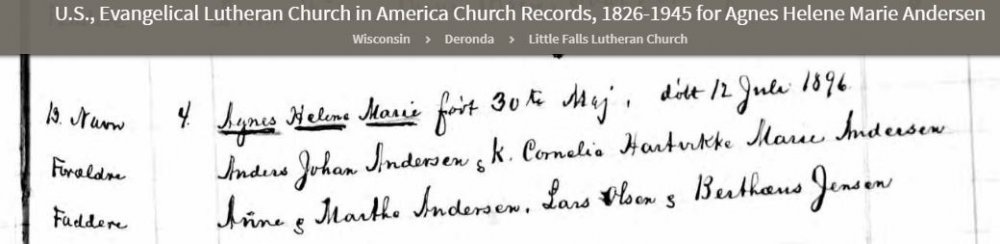 U.S., Evangelical Lutheran Church in America Church Records, 1826-1945 for Agnes Helene Marie Andersen
Wisconsin > Deronda > Little Falls Lutheran Church
B. Navn 4. Agnes Helene Marie født 30te Maj, døbt 12 Juli 1896.
Forældre Anders Johan Andersen & K. Cornelia Hartvikke Marie Andersen
Faddere Anne & Marthe Andersen, Lars Olsen & Jensen